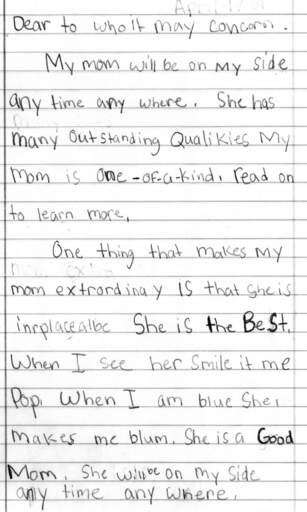 Dear to who it may concorn.
My mom will be on My side
any time any where. She has
many outstanding Qualikies My
mom is one-of-a-kind. read on
to learn more.
One thing that makes My
mom extrordinay IS that she is
inrplacealbe She is the BeSt.
When I see her Smile it me
Pop. When I am blue She.
makes me blum. She is a Good
Mom. She will be on my side
any time any where.